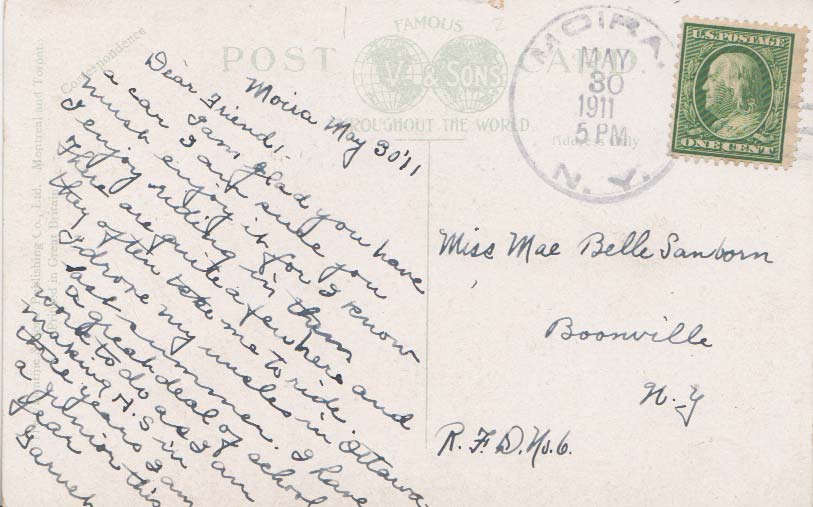 POST CARD
FAMOUS
V. & SONS
THROUGHOUT THE WORLD
Correspondence
Address Only
MOIRA.
MAY
30
1911
5 PM
N. Y.
U.S. POSTAGE
ONE CENT
Moira May 30'11
Dear Friend:-
I am glad you have
a car I am sure you
must enjoy it for I know
I enjoy riding in them
There are quite a few here and
they often take me to ride.
I drove my uncles in Ottawa
last summer. I have
a great deal of school
work to do as I am
making H. S in
three years I am
a junior this
year
Garnet
Miss Mae Belle Sanborn
Boonville
N-Y
R. F. D. No. 6.
Publishing Co., Ltd. Montreal and Toronto.
Printed in Great Britain